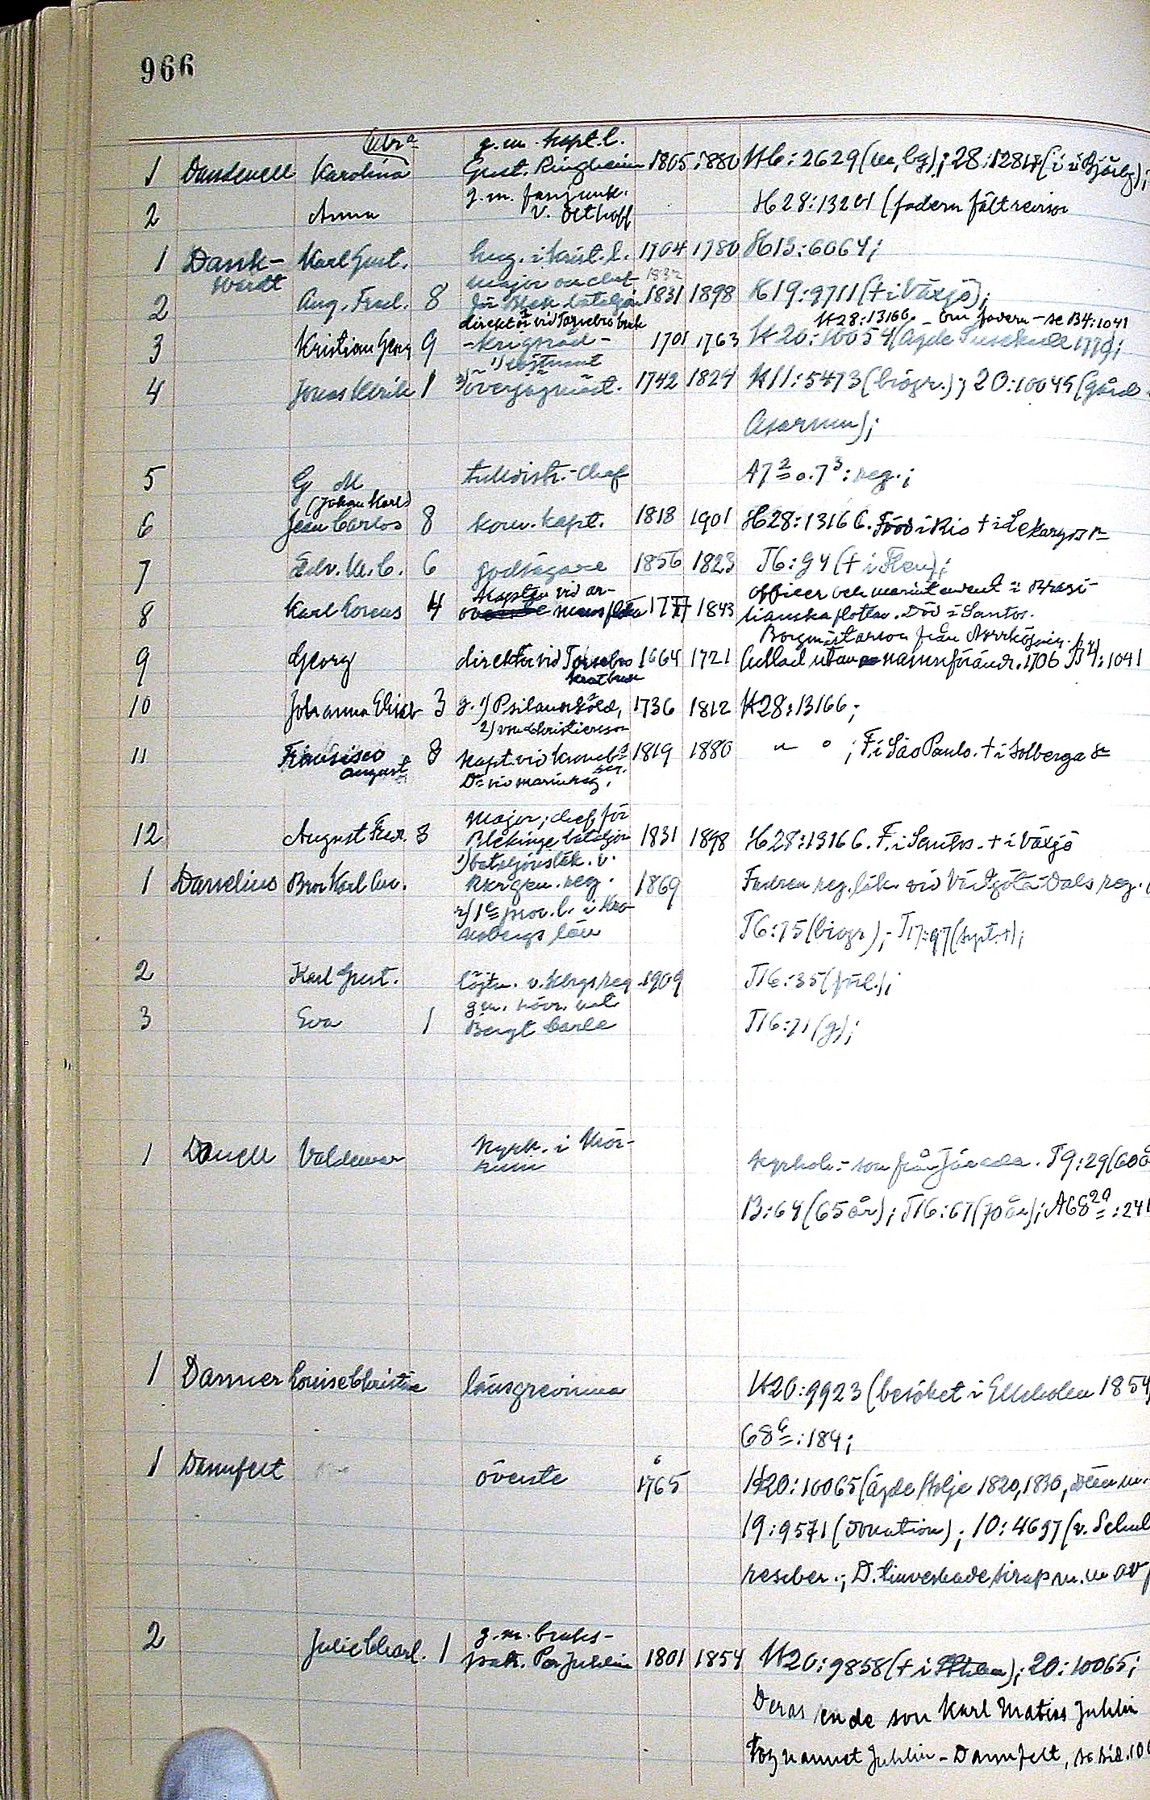 966
g. m. kapt. l.
1 Dandenell Karolina Gust. Ringheim 1805 1880 H6:2629 ; 28:12817
g. m. fanjunk.
2 Anna v. Otthoff H28:13201 (fadern fältveriser
1 Dank- Karl Gust. 1704 1780 H13:6064;
wardt major och chef 1832
2 Aug. Fred. 8 för Blek. bataljon 1831 1898 H19:9711 (+ i Växjö);
direktör vid Torsebro bruk H28:13166. - om favern - se B4:1041
3 Kristian Georg 9 - krigsråd - 1701 1763 H20:10054 (ägde 1770;
4 Jonas Ulrik 1 överjägmäst. 1742 1824 H11:5473 (biogr.); 20:10045 (gård
Asarum);
5 G M tulldistr.-chef A7² o. 7³: reg.;
(Johan Karl)
6 Jean Carlos 8 kom. kapt. 1818 1901 H28:13166. Född i Rio + i
7 Edv. M. C. 6 godsägare 1856 1823 T6:94 (+ i Flen);
Kapten vid ar- officer och i Brasi-
8 Karl Lorens 4 méns flotta 1777 1843 lianska flottan. Död i Santos.
Borgmästarson från Norrköping.
9 Georg direktör vid Torsebro 1664 1721 Adlad utan namnförändr. 1706 B4:1041
krutbruk
10 Johanna Elisab 3 g. 1) Psilanderskjöld, 1736 1812 H28:13166;
2) von Christierson
11 Francisco 8 Kapt. vid Kronob. 1819 1880 " " ; F. i São Paulo. + i Solberga
August D:o vid marinreg.
Major, chef för
12 August Fred. 8 Blekinge bataljon 1831 1898 H28:13166. F. i Santos. + i Växjö
1) bataljonsläk. v.
1 Danelius Bror Karl Guv. reg. 1869 Fadren reg. läk. vid Västgöta-Dals reg.
2) 1e prov. l. i Kro- T6:75 (biogr); T17:97
nobergs län
2 Karl Gust. löjtn. v. reg 1909 T16:35 (förl.);
3 Eva 1 Bengt Carle T16:71 (g);
1 Danell Valdemar kyrkh. i Mör- kyrkoh.- son från Järeda. T9:29 (60 å
rum B:64 (65 år); T16:67 (70 år); A68²ᵃ:241
1 Danner Louise Christine länsgrevinna H20:9923 (besöket i Elleholm 1854
68ᶜ:184;
1 Dannfelt överste 1765 H20:10065 (ägde Holje 1820, 1830,
19:9571 (donation); 10:4697 (v. Schul
reseber.; D. tillverkade sirap m. m av
g. m. bruks-
2 Julie Charl. 1 patr. Per Juhlin 1801 1854 H20:9858 (+ i ); 20:10065;
Deras ende son Karl Matias Juhlin
tog namnet Juhlin-Dannfelt, se sid. 10